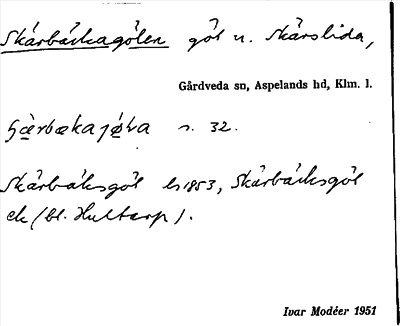 Skärbäckagölen göl n. Skärslida,
Gårdveda sn, Aspelands hd, Klm. l.
s. 32.
Skärbäksgöl ls 1853, Skärbäcksgöl
ek (bl. Hultarp).
Ivar Modéer 1951